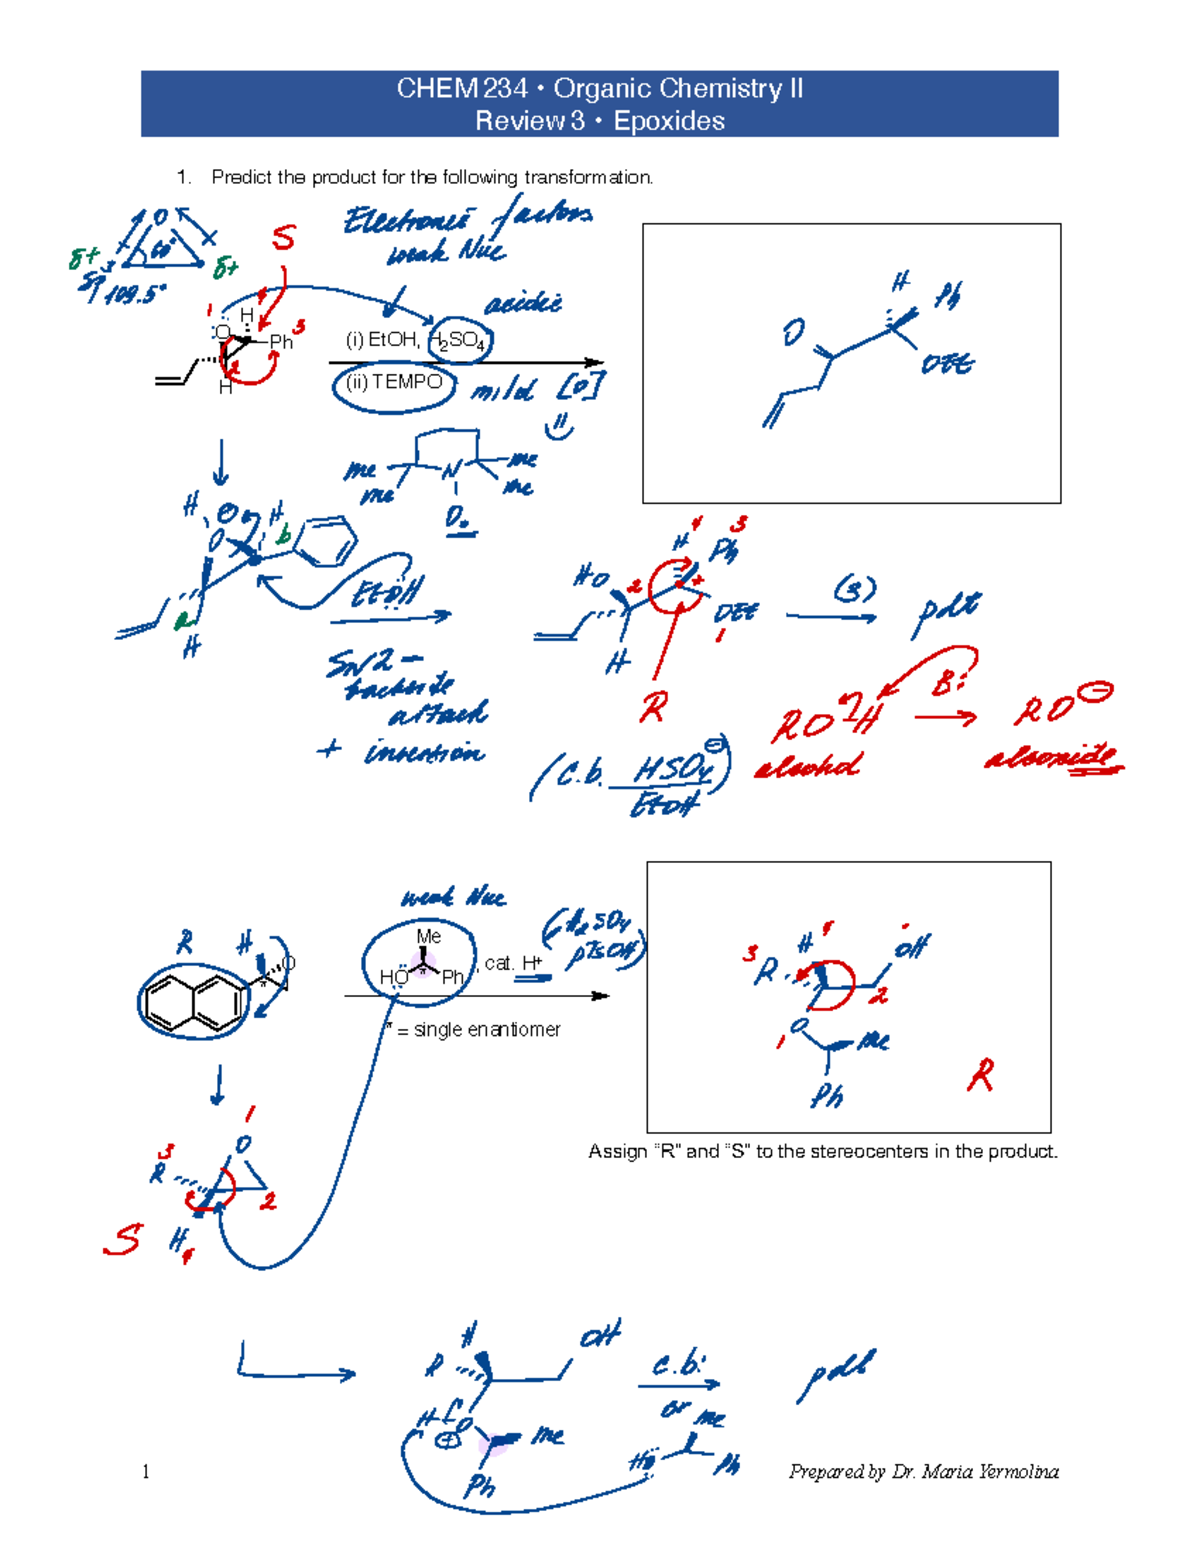 CHEM 234 • Organic Chemistry II
Review 3 • Epoxides
1. Predict the product for the following transformation.
Electronic factors
weak Nuc
S
O
60°
δ+
δ+
sp³
109.5°
acidic
1
H
4
O
Ph
3
2
H
(i) EtOH, H₂SO₄
(ii) TEMPO
mild [O]
H
Ph
O
OEt
Me
Me
N
Me
Me
O.
H
O
H
b
a
H
EtOH
SN2 -
backside
attack
+ insertion
4
3
H
Ph
HO
2
*
OEt
1
H
R
(B)
pdt
RO H
B:
RO⊖
alcohol
alkoxide
(c.b. HSO₄⊖)
EtOH
weak Nuc
R
H
O
*
Me
HO
*
Ph
, cat. H⁺
(H₂SO₄
pTsOH)
* = single enantiomer
3
H
4
OH
R
2
O
1
Me
Ph
R
Assign “R” and “S” to the stereocenters in the product.
1
O
3
R
2
H
4
S
H
OH
R
H
O
⊕
Me
Ph
c.b:
or
Me
HO
Ph
pdt
1
Prepared by Dr. Maria Yermolina